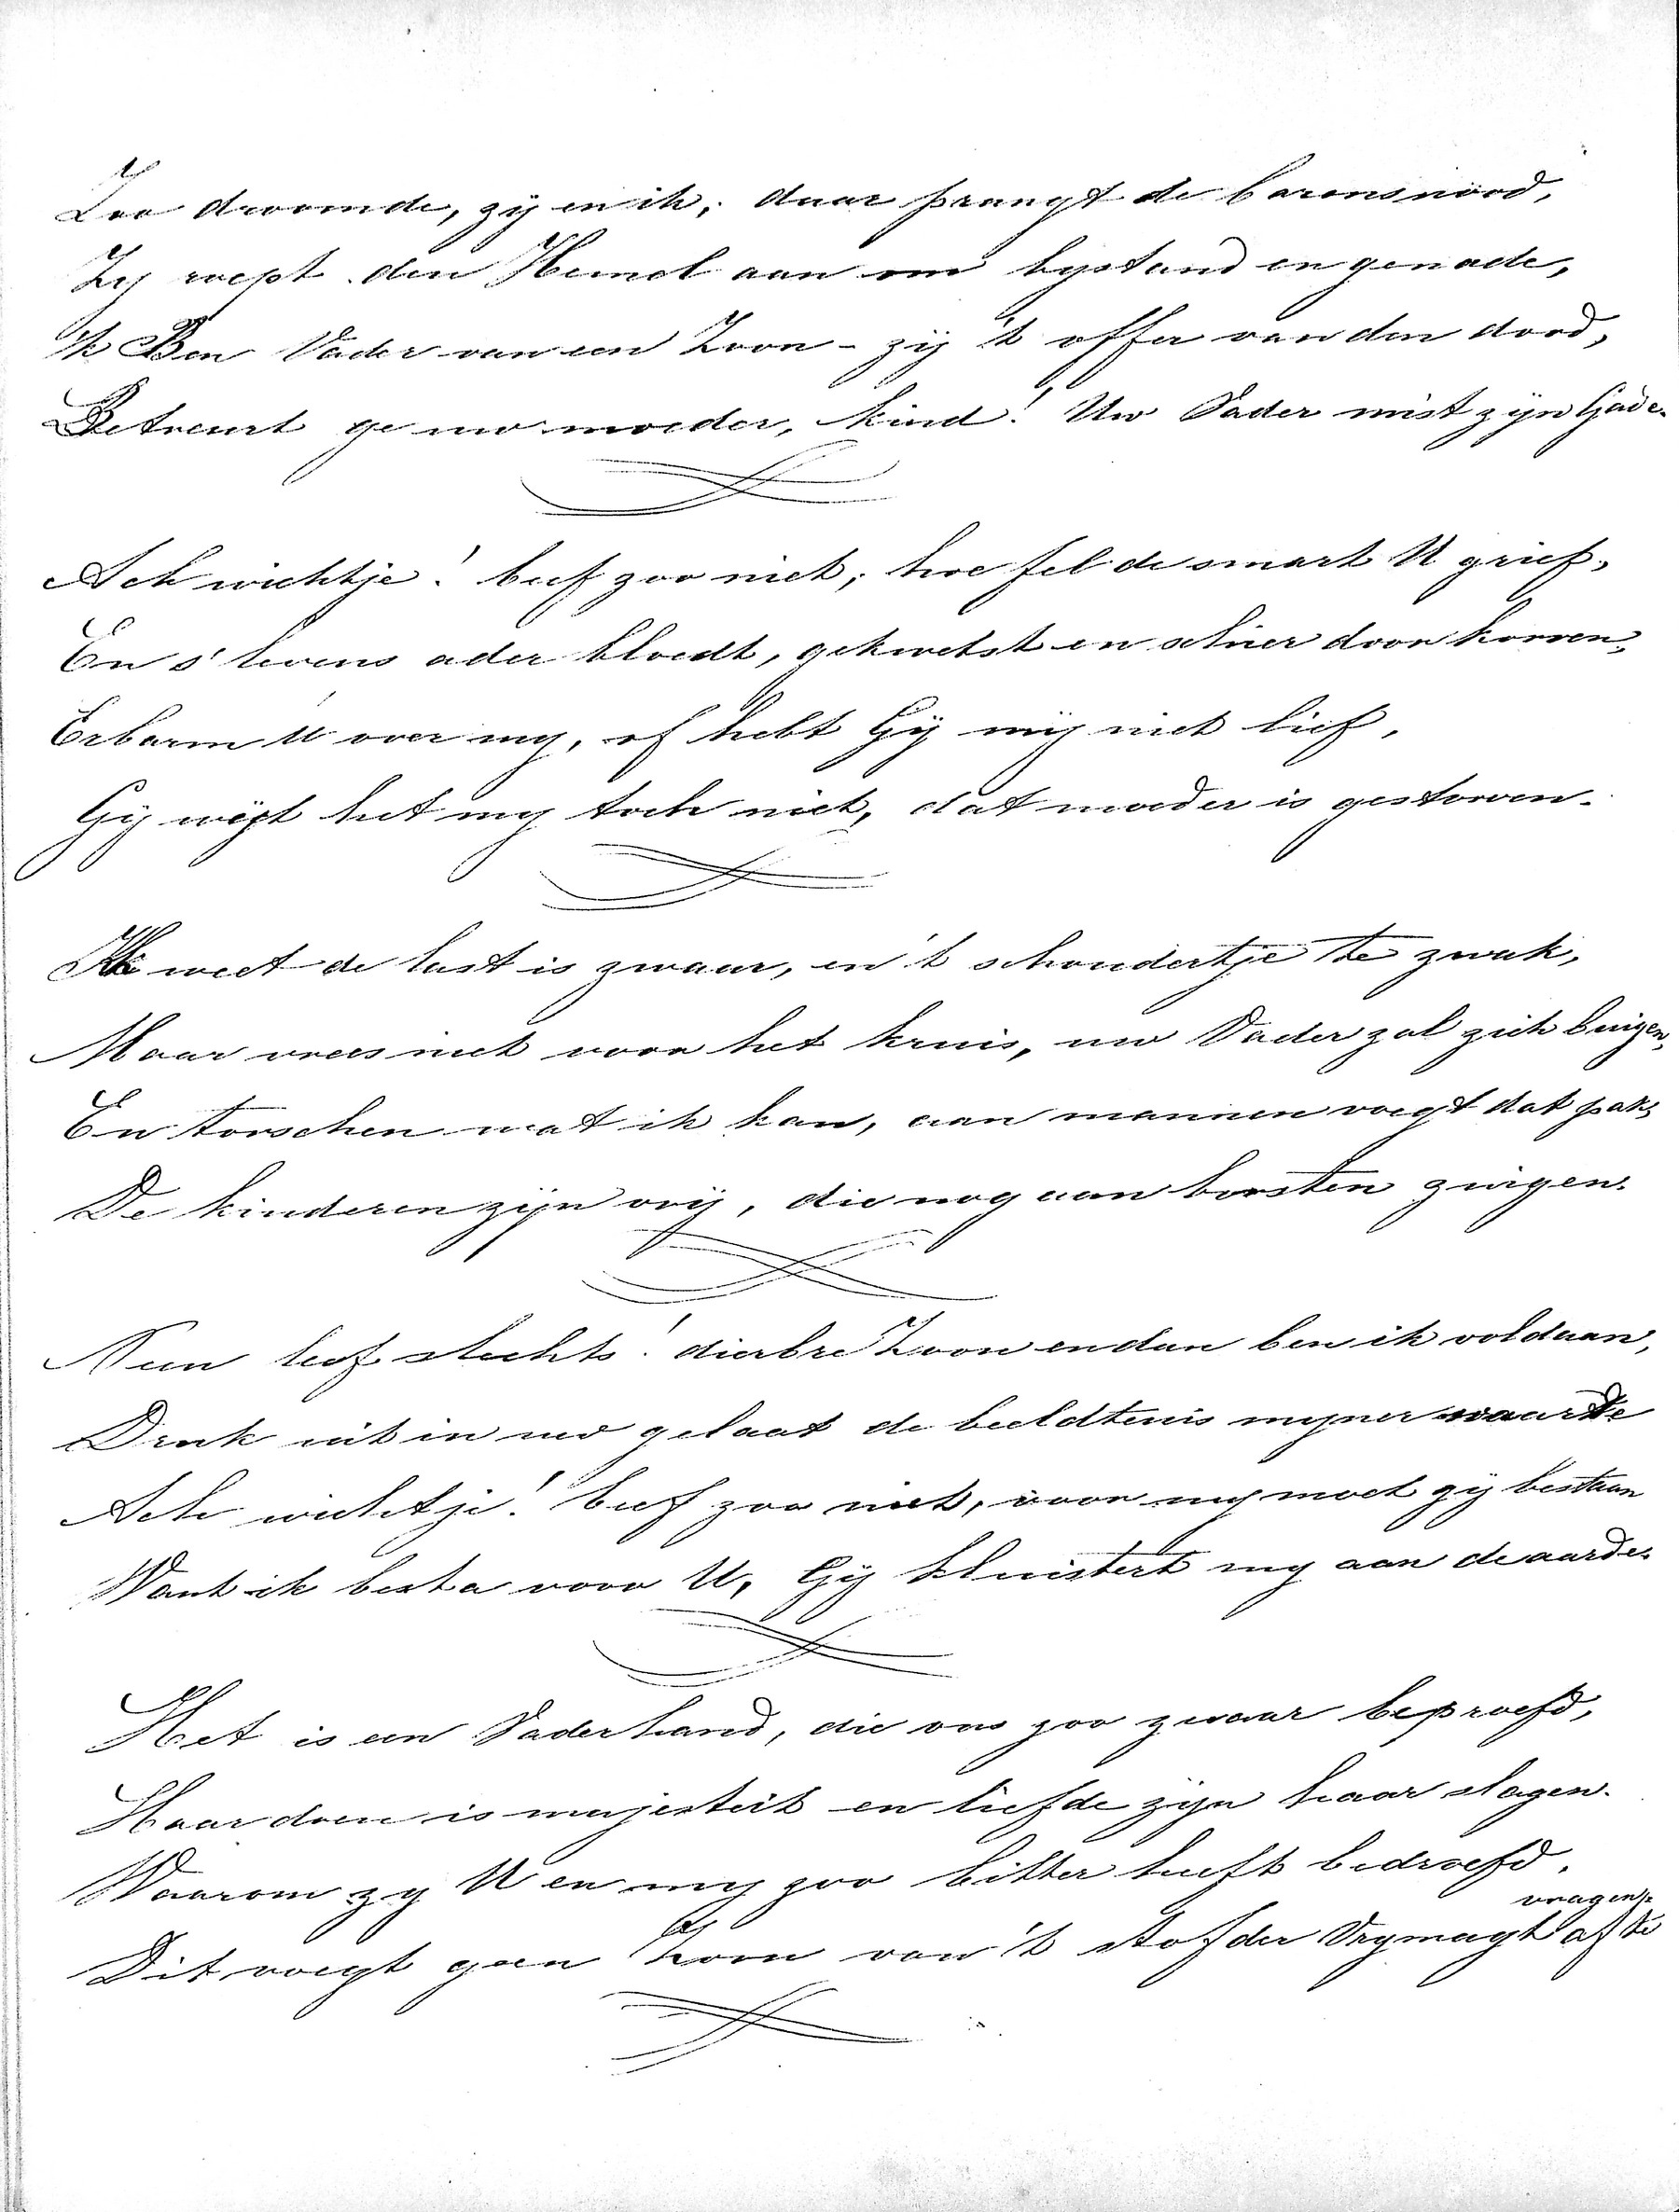 Zoo droomde, zij en ik, daar prangt de barensnood,
Zy roept den Hemel aan om bystand en genade,
Ik Ben Vader van een Zoon - zij 't offer van den dood,
Betreurt ge uw moeder, kind! Uw Vader mist zyn Gade.
Ach wichtje! beef zoo niet, hoe fel de smart U grief,
En s' levens ader bloedt, gekwetst en schier doorkorven,
Erbarm U over my, of hebt Gij mij niet lief,
Gij wijt het my toch niet, dat moeder is gestorven.
Ik weet de last is zwaar, en 't schoudertje te zwak,
Maar vrees niet voor het kruis, uw Vader zal zich buigen,
En torschen wat ik kan, aan mannen voegt dat pak,
De kinderen zijn vrij, die nog aan borsten zuigen.
Neen leef slechts! dierbre Zoon en dan ben ik voldaan,
Druk uit in uw gelaat de beeldtenis myner waarde
Ach wichtje! beef zoo niet, voor my moet gij bestaan
Want ik besta voor U, Gij kluistert my aan de aarde.
Het is een Vaderhand, die ons zoo zwaar beproefd,
Haar doen is majesteit en liefde zijn haar slagen.
Waarom zy U en my zoo bitter heeft bedroefd,
Dit voegt geen kom van 't stof der Vrymagt af te vragen.